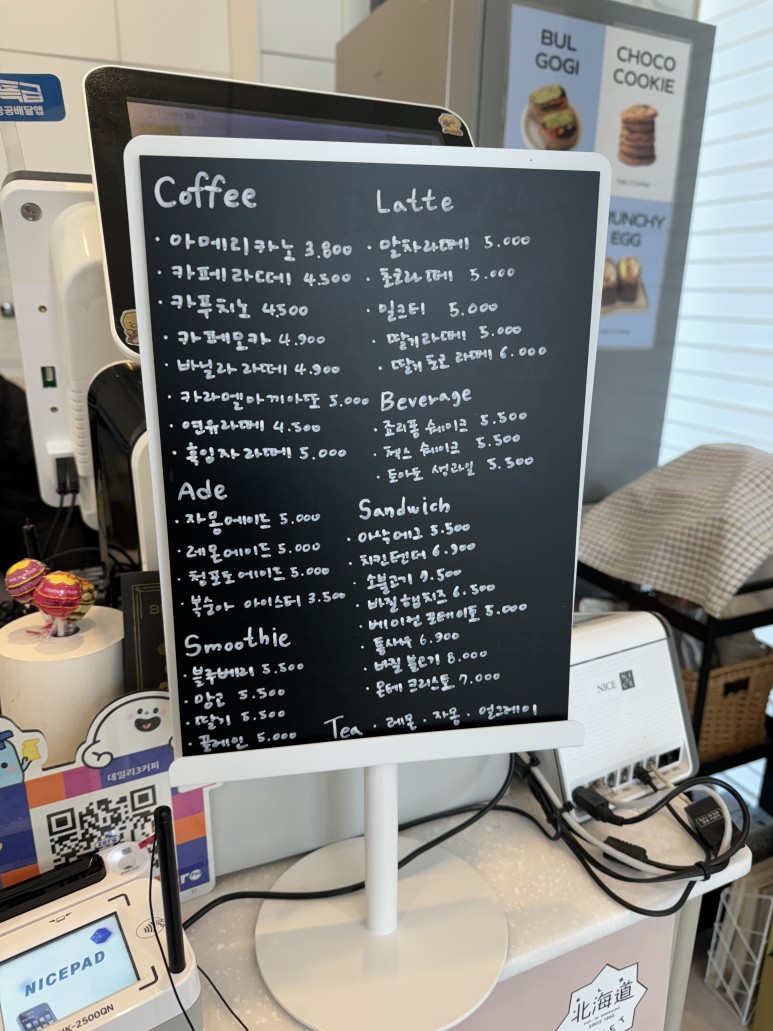 특급
공공배달앱
BUL
GOGI
CHOCO
COOKIE
CRUNCHY
EGG
Coffee
· 아메리카노 3.800
· 카페라떼 4.500
· 카푸치노 4500
· 카페모카 4.900
· 바닐라 라떼 4.900
· 카라멜마끼아또 5.000
· 연유라떼 4.500
· 흑임자라떼 5.000
Ade
· 자몽에이드 5.000
· 레몬에이드 5.000
· 청포도에이드 5.000
· 복숭아 아이스티 3.500
Smoothie
· 블루베리 5.500
· 망고 5.500
· 딸기 5.500
· 플레인 5.000
Latte
· 말차라떼 5.000
· 초코라떼 5.000
· 밀크티 5.000
· 딸기라떼 5.000
· 딸기초코 라떼 6.000
Beverage
· 죠리퐁 쉐이크 5.500
· 쉐이크 5.500
· 토마토 생과일 5.500
Sandwich
· 아삭에그 5.500
· 치킨텐더 6.900
· 소불고기 7.500
· 바질햄치즈 6.500
· 베이컨 포테이토 5.000
· 통새우 6.900
· 바질 불고기 8.000
· 몬테 크리스토 7.000
Tea · 레몬 · 자몽 · 얼그레이
데일리3커피
NICE
NICEPAD
NK-2500QN
北海道